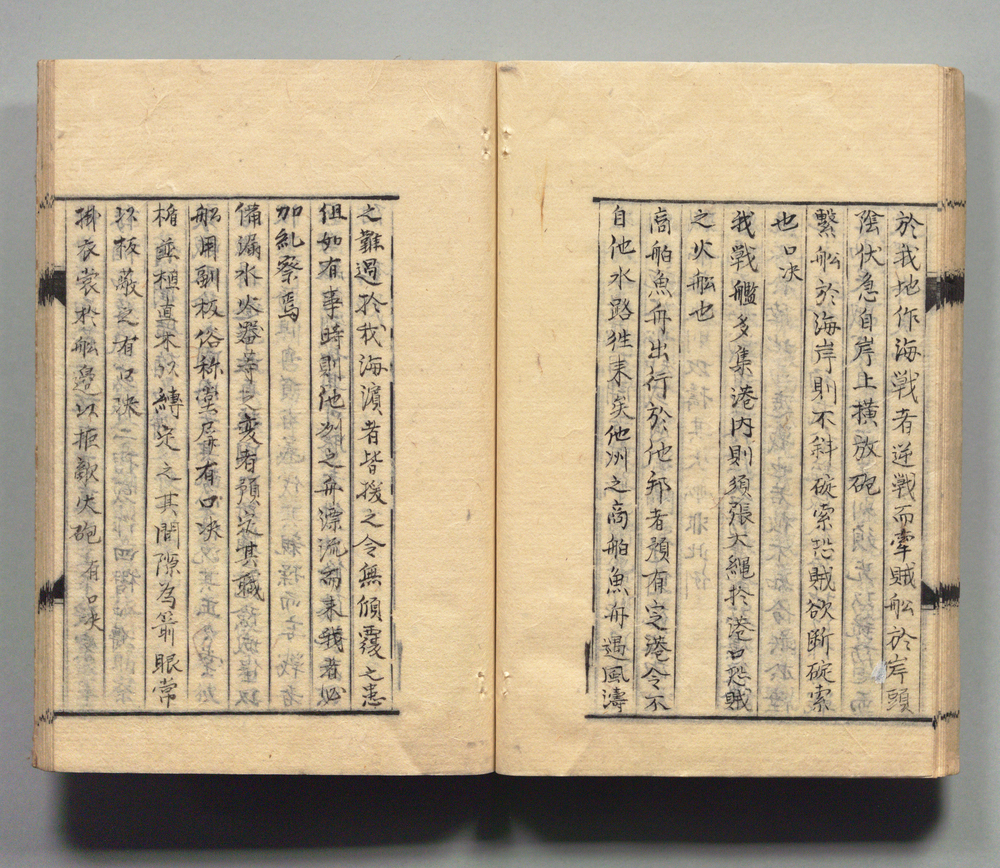 於我地作海戦者逆戦而牽賊舩於岸頭
陰伏急自岸上横放砲
繫舩於海岸則不斜碇索恐賊欲断碇索
也口决
我戰艦多集港内則須張大縄於港口恐賊
之火舩也
商舶魚舟出行於他邦者預有定港令不
自他水路徃来矣他洲之商舶魚舟遇風濤
之難過於我海濱者皆援之令無傾覆之患
但如有事時則他州之舟漂流而来我者必
加糺察焉
備漏水火器等具変者預定其職
舩用副板俗称堂屏有口决
楯並極直木以縛定之其間隙為箭眼常
板蔽之有口决
掛衣裳於舩邉以拒敵火砲有口决